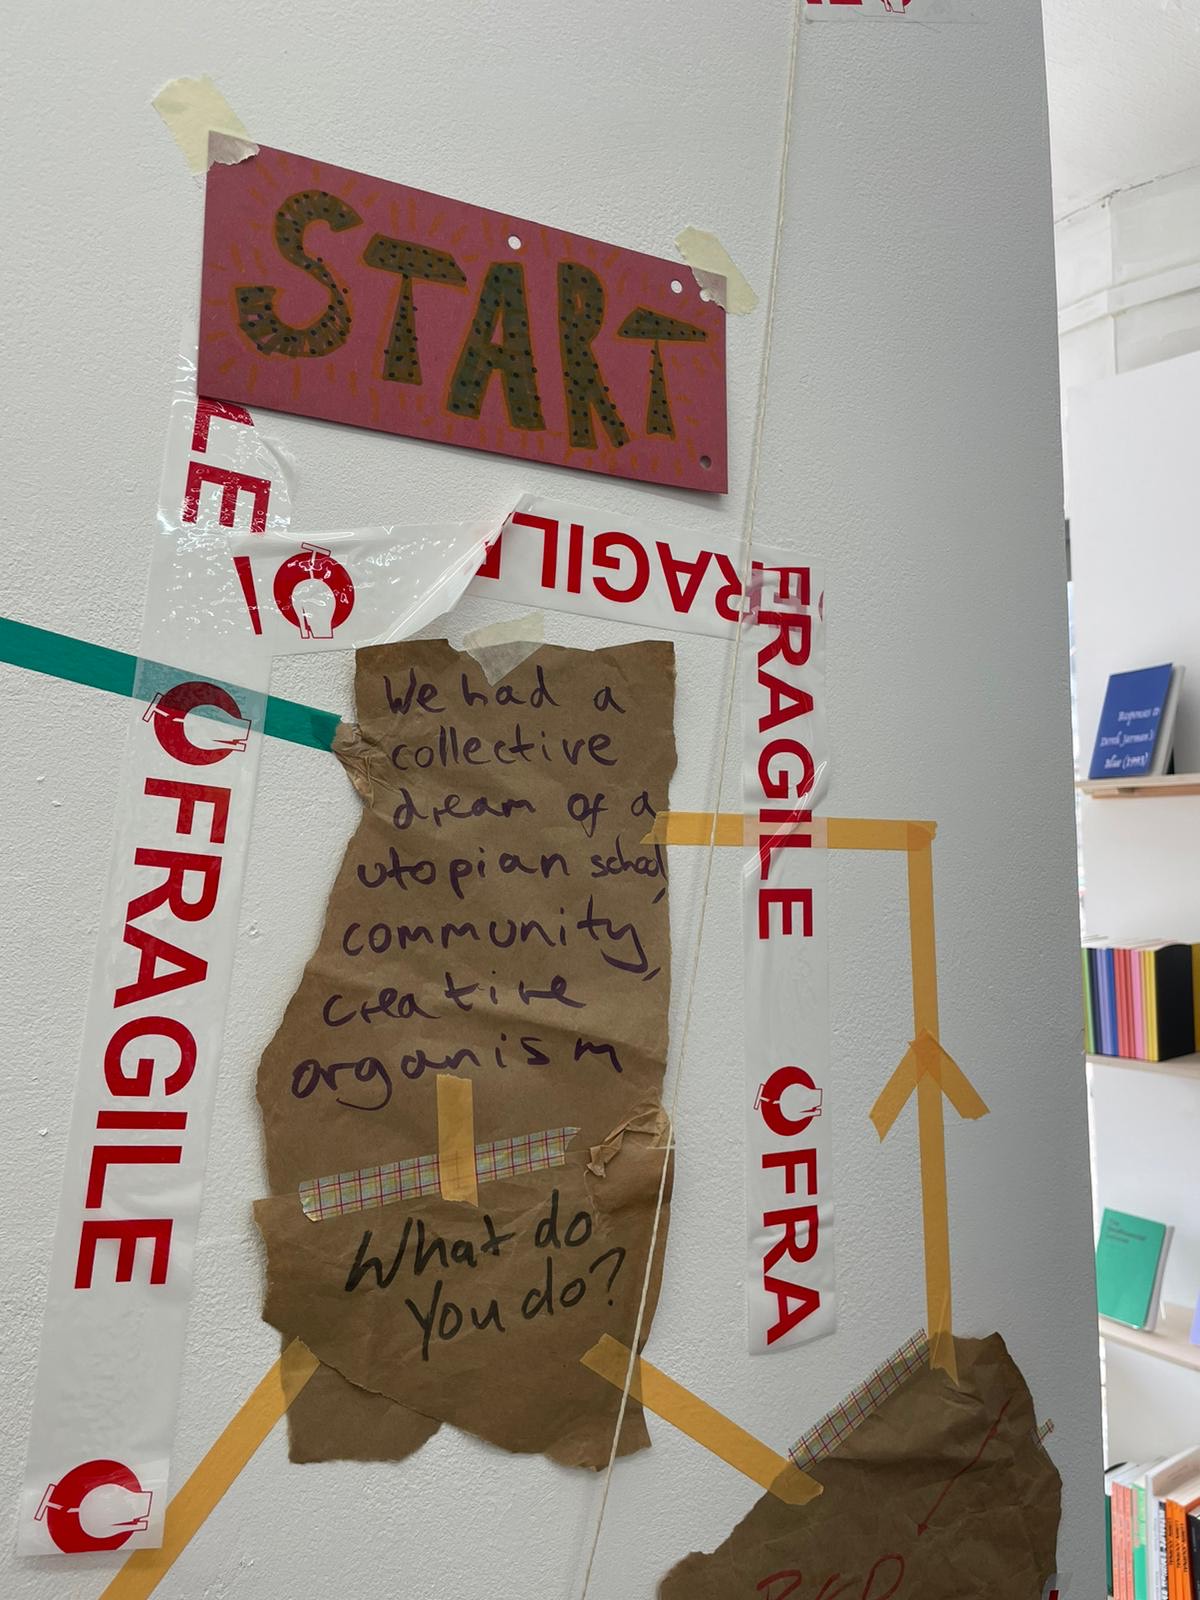 START
LE
FRAGILE
FRAGILE
FRAGILE
FRA
We had a
collective
dream of a
utopian school,
community,
creative
organism
What do
You do?
Responses to
Derek Jarman's
Blue (1993)